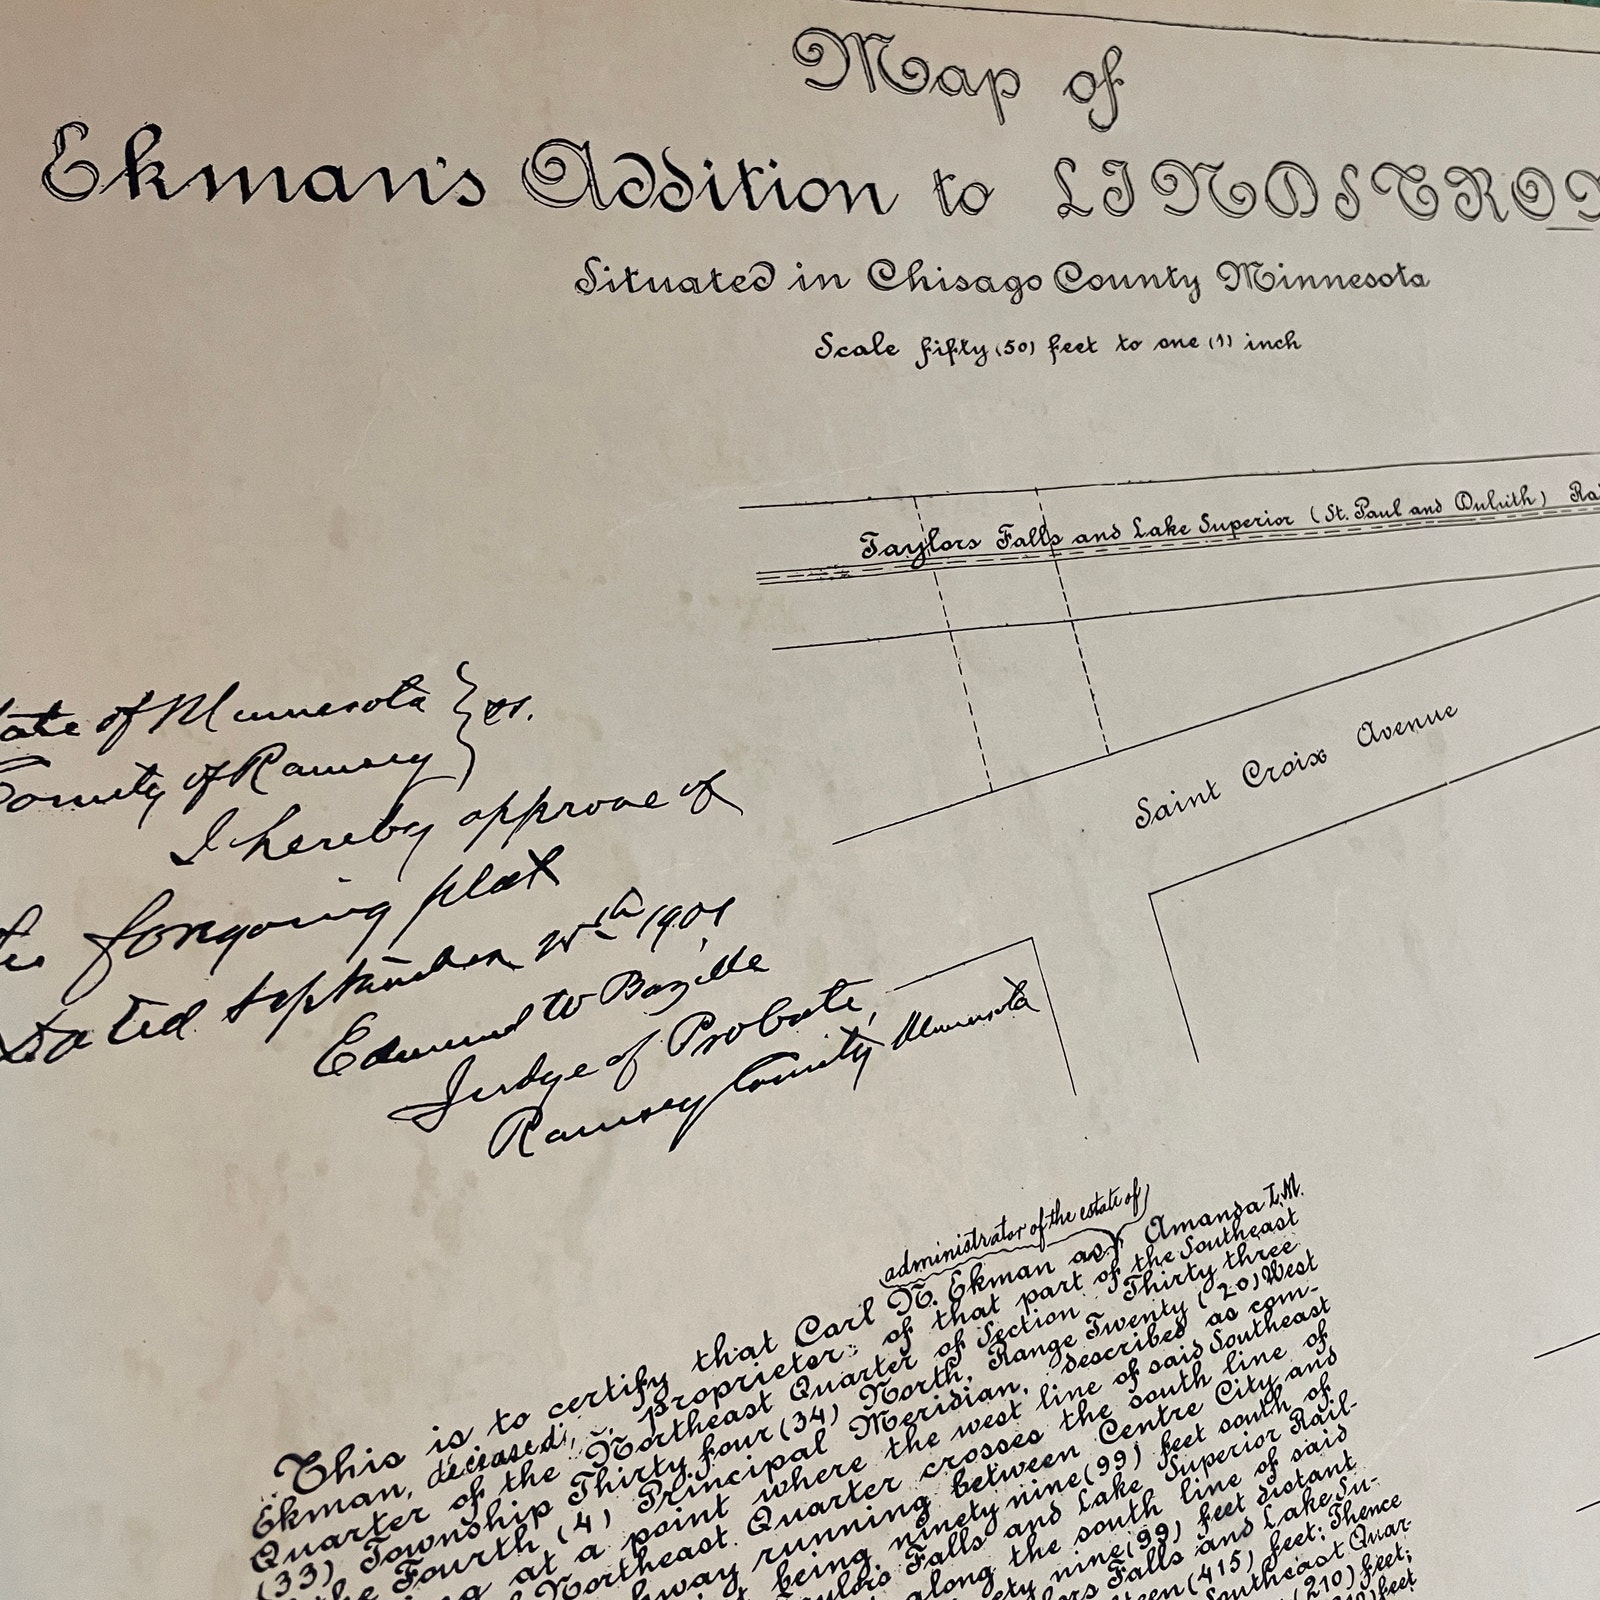 Map of
Ekman's Addition to LINDSTRO
Situated in Chisago County Minnesota
Scale fifty (50) feet to one (1) inch
Taylors Falls and Lake Superior (St. Paul and Duluth) Ra
Saint Croix Avenue
tate of Minnesota } ss.
County of Ramsey
I hereby approve of
foregoing plat
Dated September 25th 1901
Edmund W Bazille
Judge of Probate,
Ramsey County Minnesota
administrator of the estate of
This is to certify that Carl N. Ekman as Amanda I.M.
Ekman, deceased, Proprietor of that part of the Southeast
Quarter of the Northeast Quarter of Section Thirty three
(33) Township Thirty four (34) North, Range Twenty (20) West
the Fourth (4) Principal Meridian, described as com-
at a point where the west line of said Southeast
Northeast Quarter crosses the south line of
hway running between Centre City and
being ninety nine (99) feet south of
Taylors Falls and Lake Superior Rail-
along the south line of said
ety nine (99) feet distant
lors Falls and Lake Su-
teen (415) feet; Thence
Southeast Quar-
(210) feet;
feet